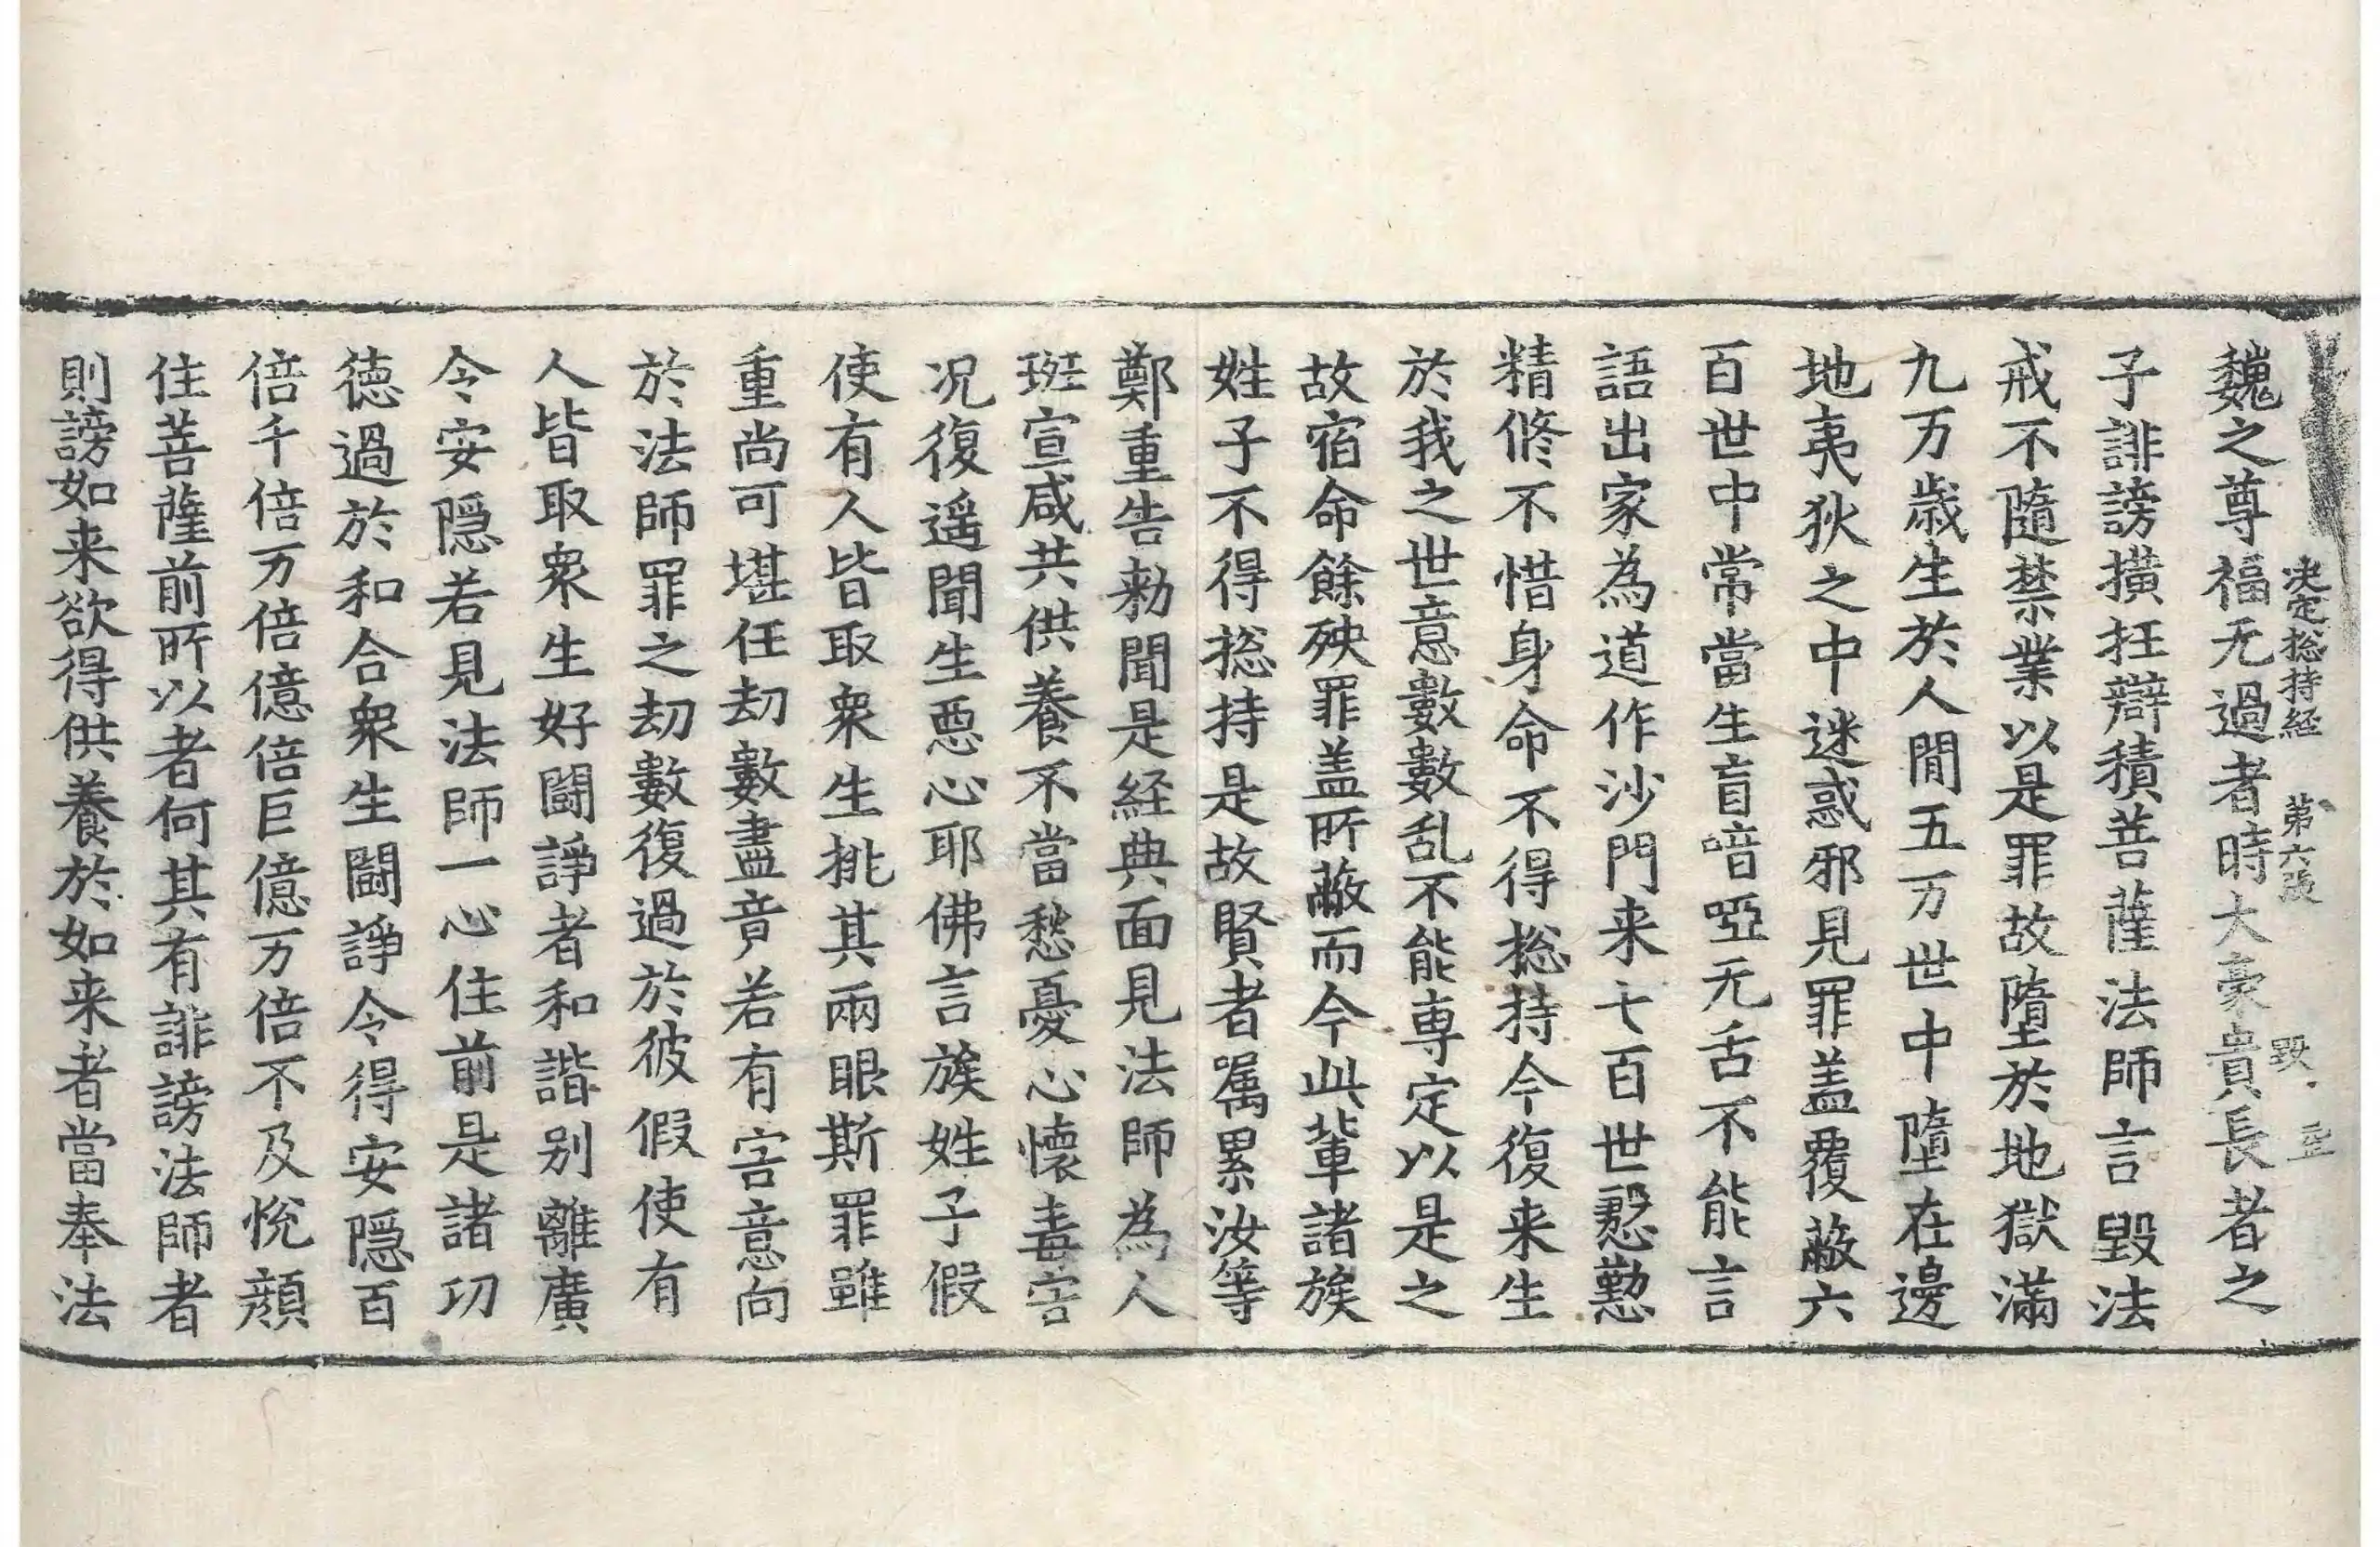 決定捴持経 第六張 毀
魏之尊福无過者時大豪貴長者之
子誹謗撗抂辯積菩薩法師言毀法
戒不隨禁業以是罪故墮於地獄滿
九万歳生於人間五万世中墮在邊
地夷狄之中迷惑邪見罪盖覆蔽六
百世中常當生盲喑啞无舌不能言
語出家為道作沙門来七百世慇懃
精修不惜身命不得捴持今復来生
於我之世意數數乱不能専定以是之
故宿命餘殃罪盖所蔽而今此輩諸族
姓子不得捴持是故賢者嘱累汝等
鄭重告勑聞是経典面見法師為人
班宣咸共供養不當愁憂心懷毒害
况復遥聞生惡心耶佛言族姓子假
使有人皆取衆生挑其兩眼斯罪雖
重尚可堪任劫數盡竟若有害意向
於法師罪之劫數復過於彼假使有
人皆取衆生好鬪諍者和諧别離廣
令安隱若見法師一心住前是諸功
德過於和合衆生鬪諍令得安隱百
倍千倍万倍億倍巨億万倍不及悅顔
住菩薩前所以者何其有誹謗法師者
則謗如来欲得供養於如来者當奉法